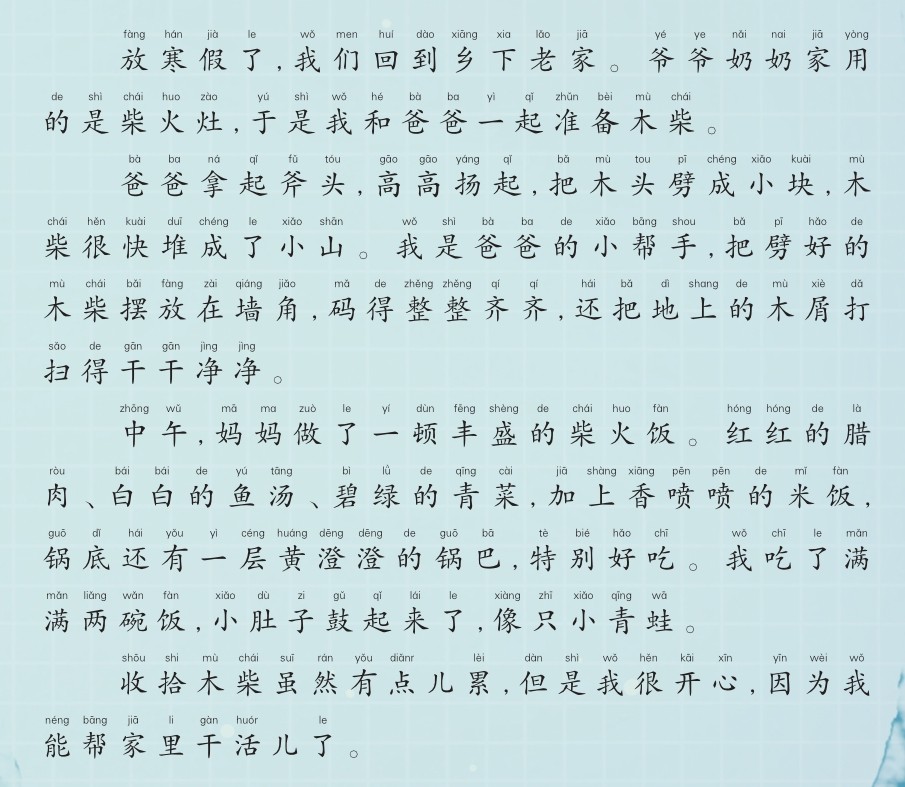 fàng hán jià le wǒ men huí dào xiāng xia lǎo jiā yé ye nǎi nai jiā yòng
放寒假了,我们回到乡下老家。爷爷奶奶家用
de shì chái huo zào yú shì wǒ hé bà ba yì qǐ zhǔn bèi mù chái
的是柴火灶,于是我和爸爸一起准备木柴。
bà ba ná qǐ fǔ tóu gāo gāo yáng qǐ bǎ mù tou pī chéng xiǎo kuài mù
爸爸拿起斧头,高高扬起,把木头劈成小块,木
chái hěn kuài duī chéng le xiǎo shān wǒ shì bà ba de xiǎo bāng shou bǎ pī hǎo de
柴很快堆成了小山。我是爸爸的小帮手,把劈好的
mù chái bǎi fàng zài qiáng jiǎo mǎ de zhěng zhěng qí qí hái bǎ dì shang de mù xiè dǎ
木柴摆放在墙角,码得整整齐齐,还把地上的木屑打
sǎo de gān gān jìng jìng
扫得干干净净。
zhōng wǔ mā ma zuò le yí dùn fēng shèng de chái huo fàn hóng hóng de là
中午,妈妈做了一顿丰盛的柴火饭。红红的腊
ròu bái bái de yú tāng bì lǜ de qīng cài jiā shàng xiāng pēn pēn de mǐ fàn
肉、白白的鱼汤、碧绿的青菜,加上香喷喷的米饭,
guō dǐ hái yǒu yì céng huáng dēng dēng de guō bā tè bié hǎo chī wǒ chī le mǎn
锅底还有一层黄澄澄的锅巴,特别好吃。我吃了满
mǎn liǎng wǎn fàn xiǎo dù zi gǔ qǐ lái le xiàng zhī xiǎo qīng wā
满两碗饭,小肚子鼓起来了,像只小青蛙。
shōu shi mù chái suī rán yǒu diǎnr lèi dàn shì wǒ hěn kāi xīn yīn wèi wǒ
收拾木柴虽然有点儿累,但是我很开心,因为我
néng bāng jiā li gàn huór le
能帮家里干活儿了。